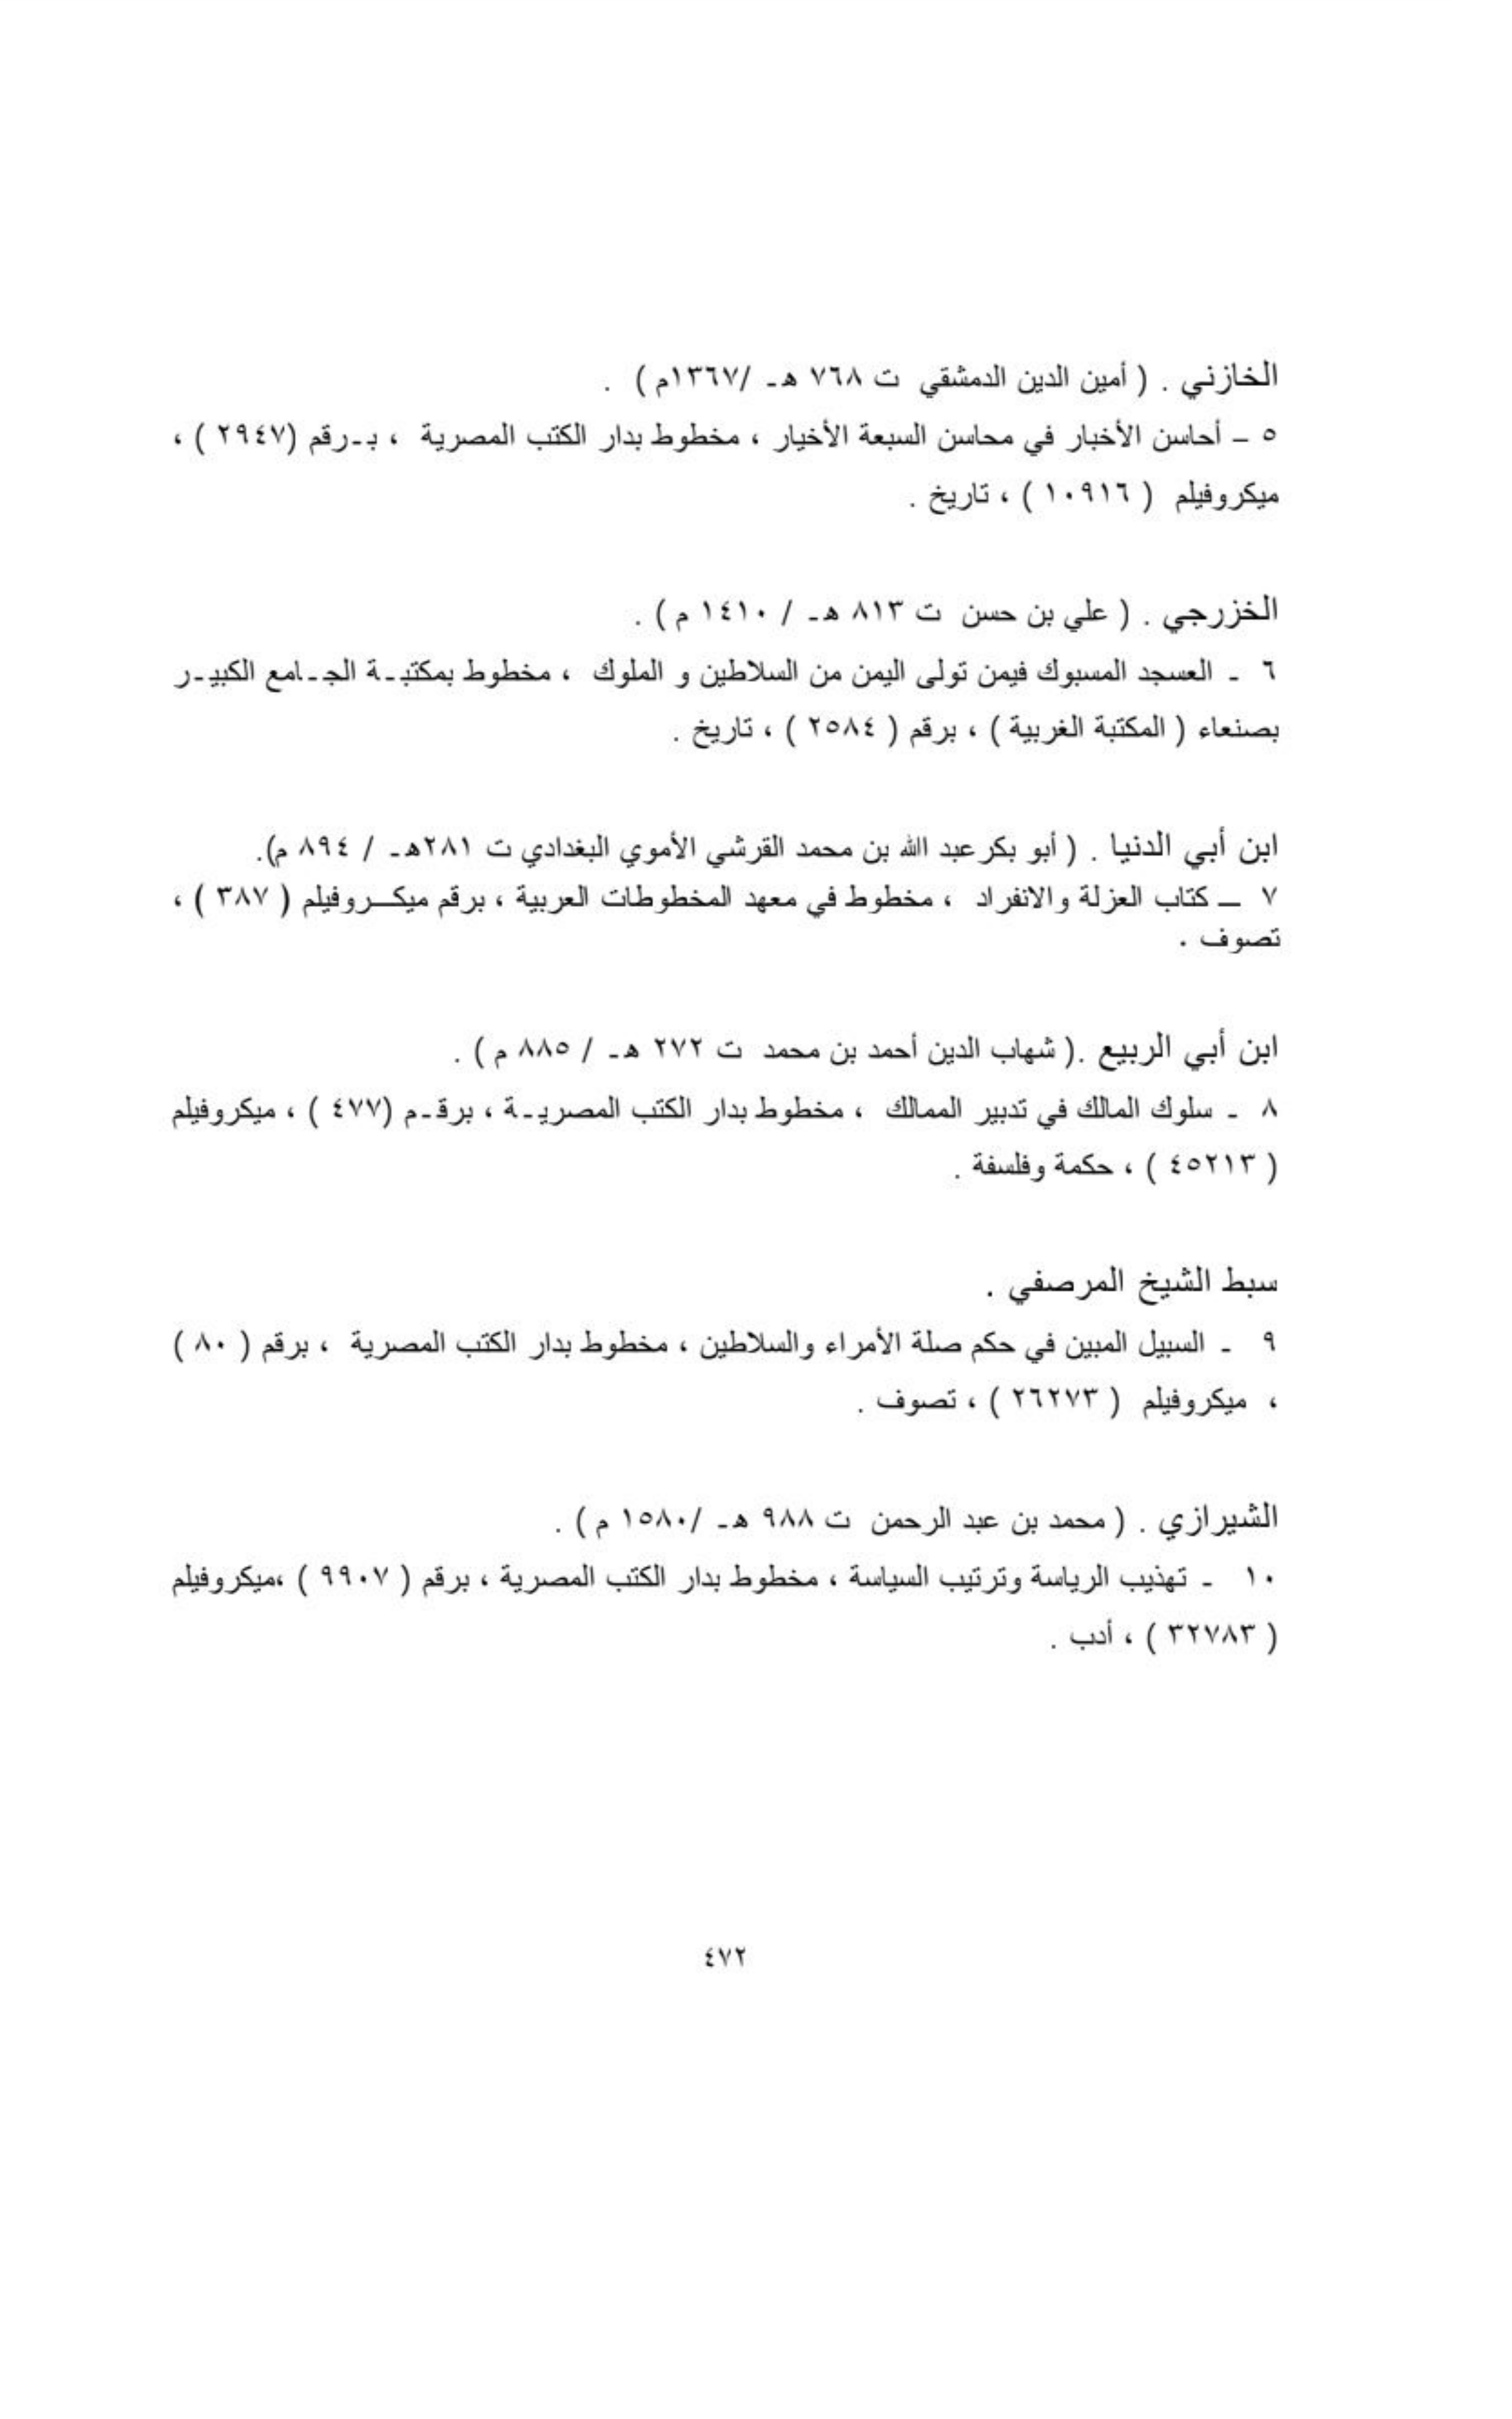 الخازني . ( أمين الدين الدمشقي ت ٧٦٨ هـ /١٣٦٧م ) .
٥ – أحاسن الأخبار في محاسن السبعة الأخيار ، مخطوط بدار الكتب المصرية ، بـرقم (٢٩٤٧ ) ،
ميكروفيلم ( ١٠٩١٦ ) ، تاريخ .
الخزرجي . ( علي بن حسن ت ٨١٣ هـ / ١٤١٠ م ) .
٦ ـ العسجد المسبوك فيمن تولى اليمن من السلاطين و الملوك ، مخطوط بمكتبـة الجـامع الكبيـر
بصنعاء ( المكتبة الغربية ) ، برقم ( ٢٥٨٤ ) ، تاريخ .
ابن أبي الدنيا . ( أبو بكر عبد الله بن محمد القرشي الأموي البغدادي ت ٢٨١هـ / ٨٩٤ م).
٧ ــ كتاب العزلة والانفراد ، مخطوط في معهد المخطوطات العربية ، برقم ميكــروفيلم ( ٣٨٧ ) ،
تصوف .
ابن أبي الربيع .( شهاب الدين أحمد بن محمد ت ٢٧٢ هـ / ٨٨٥ م ) .
٨ ـ سلوك المالك في تدبير الممالك ، مخطوط بدار الكتب المصريـة ، برقـم (٤٧٧ ) ، ميكروفيلم
( ٤٥٢١٣ ) ، حكمة وفلسفة .
سبط الشيخ المرصفي .
٩ ـ السبيل المبين في حكم صلة الأمراء والسلاطين ، مخطوط بدار الكتب المصرية ، برقم ( ٨٠ )
، ميكروفيلم ( ٢٦٢٧٣ ) ، تصوف .
الشيرازي . ( محمد بن عبد الرحمن ت ٩٨٨ هـ /١٥٨٠ م ) .
١٠ ـ تهذيب الرياسة وترتيب السياسة ، مخطوط بدار الكتب المصرية ، برقم ( ٩٩٠٧ ) ،ميكروفيلم
( ٣٢٧٨٣ ) ، أدب .
٤٧٢